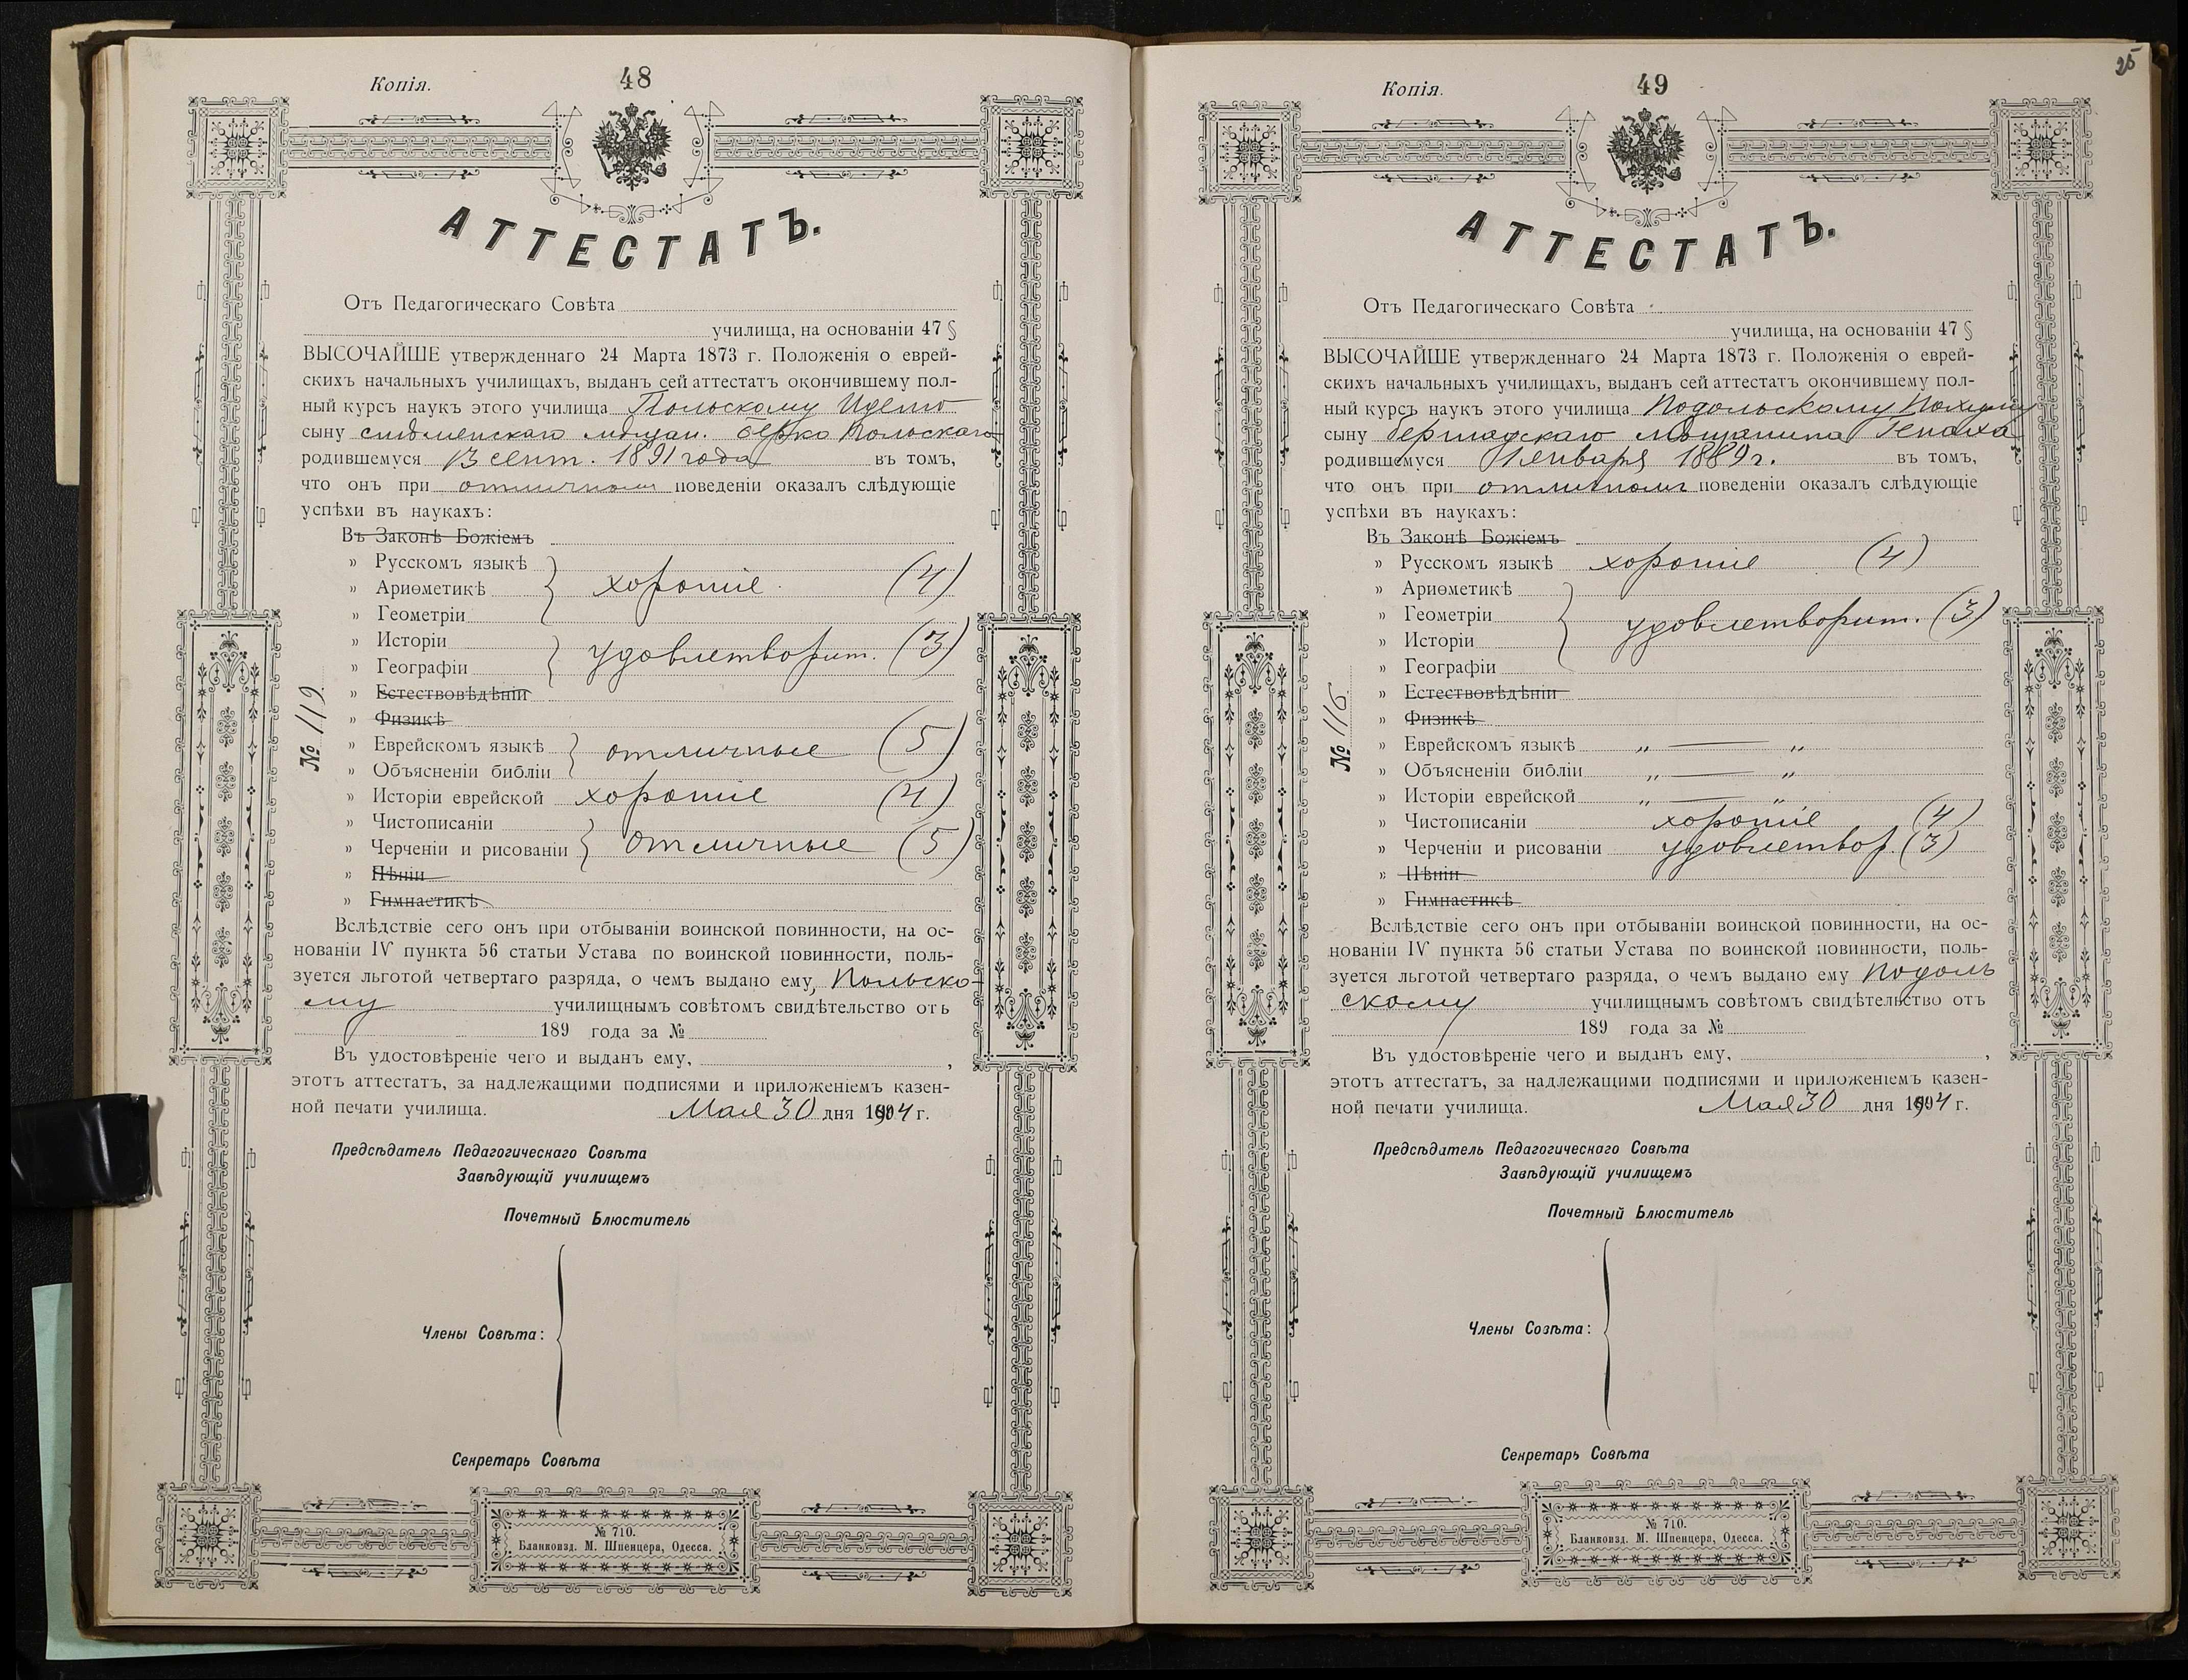 Копія.
48
АТТЕСТАТЪ.
Отъ Педагогическаго Совѣта
училища, на основаніи 47 §
ВЫСОЧАЙШЕ утвержденнаго 24 Марта 1873 г. Положенія о еврей-
скихъ начальныхъ училищахъ, выданъ сей аттестатъ окончившему пол-
ный курсъ наукъ этого училища Польскому
сыну мѣщан. Берко Польскаго
родившемуся 13 сент. 1891 года въ томъ,
что онъ при отличномъ поведеніи оказалъ слѣдующіе
успѣхи въ наукахъ:
Въ Законѣ Божіемъ
» Русскомъ языкѣ
» Ариѳметикѣ хорошіе (4)
» Геометріи
» Исторіи
удовлетворит. (3)
» Географіи
» Естествовѣдѣніи
» Физикѣ
» Еврейскомъ языкѣ отличные (5)
» Объясненіи библіи
» Исторіи еврейской хорошіе (4)
» Чистописаніи
» Черченіи и рисованіи отличные (5)
» Пѣніи
» Гимнастикѣ
Вслѣдствіе сего онъ при отбываніи воинской повинности, на ос-
нованіи IV пункта 56 статьи Устава по воинской повинности, поль-
зуется льготой четвертаго разряда, о чемъ выдано ему Польско-
му училищнымъ совѣтомъ свидѣтельство отъ
189 года за №
Въ удостовѣреніе чего и выданъ ему, ,
этотъ аттестатъ, за надлежащими подписями и приложеніемъ казен-
ной печати училища. Мая 30 дня 1904 г.
№ 119
Предсѣдатель Педагогическаго Совѣта
Завѣдующій училищемъ
Почетный Блюститель
Члены Совѣта:
Секретарь Совѣта
№ 710.
Бланкоизд. М. Шпенцера, Одесса.
25
Копія.
49
АТТЕСТАТЪ.
Отъ Педагогическаго Совѣта
училища, на основаніи 47 §
ВЫСОЧАЙШЕ утвержденнаго 24 Марта 1873 г. Положенія о еврей-
скихъ начальныхъ училищахъ, выданъ сей аттестатъ окончившему пол-
ный курсъ наукъ этого училища Подольскому Нахуму
сыну Бершадскаго мѣщанина Геноха
родившемуся 1 января 1889 г. въ томъ,
что онъ при отличномъ поведеніи оказалъ слѣдующіе
успѣхи въ наукахъ:
Въ Законѣ Божіемъ
» Русскомъ языкѣ хорошіе (4)
» Ариѳметикѣ
» Геометріи удовлетворит. (3)
» Исторіи
» Географіи
» Естествовѣдѣніи
» Физикѣ
» Еврейскомъ языкѣ „ — „
» Объясненіи библіи „ — „
» Исторіи еврейской „ — „
» Чистописаніи хорошіе (4)
» Черченіи и рисованіи удовлетвор. (3)
» Пѣніи
» Гимнастикѣ
Вслѣдствіе сего онъ при отбываніи воинской повинности, на ос-
нованіи IV пункта 56 статьи Устава по воинской повинности, поль-
зуется льготой четвертаго разряда, о чемъ выдано ему Подоль
скому училищнымъ совѣтомъ свидѣтельство отъ
189 года за №
Въ удостовѣреніе чего и выданъ ему, ,
этотъ аттестатъ, за надлежащими подписями и приложеніемъ казен-
ной печати училища. Мая 30 дня 1904 г.
№ 116
Предсѣдатель Педагогическаго Совѣта
Завѣдующій училищемъ
Почетный Блюститель
Члены Совѣта:
Секретарь Совѣта
№ 710.
Бланкоизд. М. Шпенцера, Одесса.